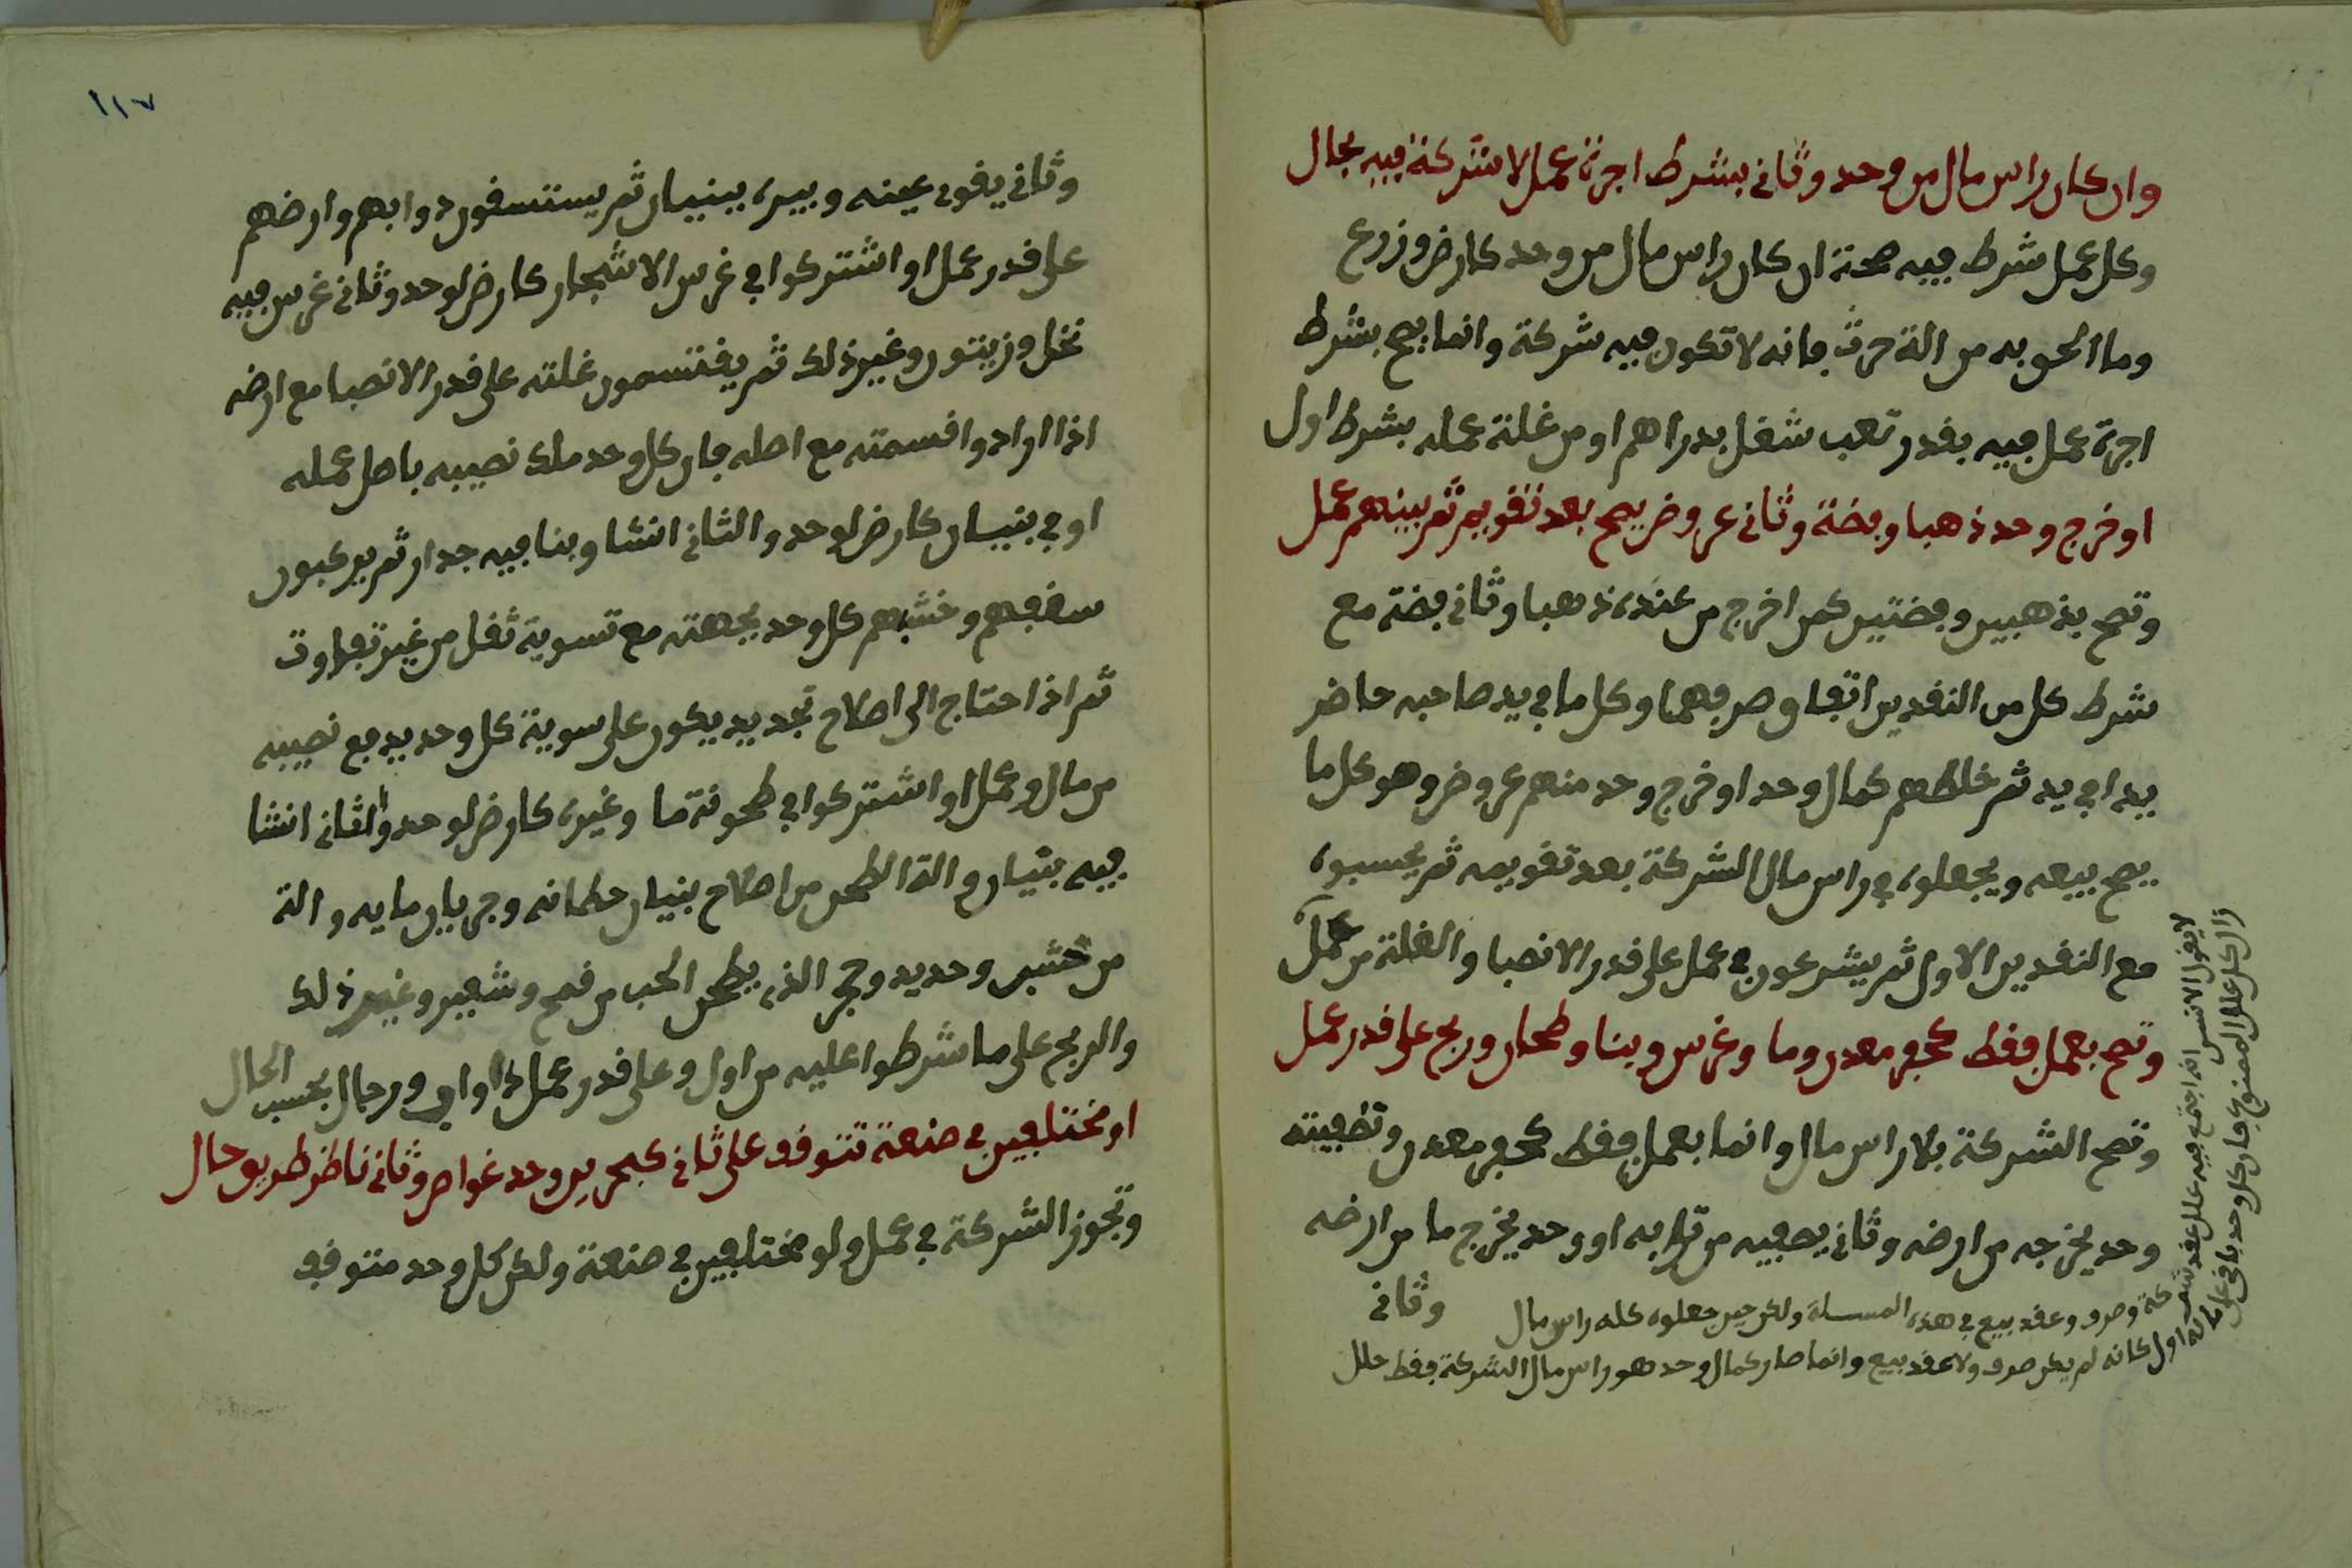 وان كان راس مال من وحد وثاني بشرط اجرة عمل لا شركة فيه بحال
وكل عمل شرط فيه صحة ان كان راس مال من وحد كارض وزرع
وما الحو به من الة حرث فانه لا تكون فيه شركة وانما يصح بشرط
اجرة عمل فيه بقدر تعب شغل بدراهم او من غلة عمله بشرط اول
او خرج وحد ذهبا وفضة وثاني عروض يصح بعد تقويم ثم بينهم عمل
وتصح بذهبين وفضتين كمن اخرج من عنده ذهبا وثاني فضة مع
شرط كل من النقدين اتفاق صرفهما وكل ما في يد صاحبه حاضر
يدا في يد ثم خلطهم كمال وحد او خرج وحد منهم عروض وهو كل ما
يصح بيعه ويجعلوه في راس مال الشركة بعد تقويمه ثم يحسبوه
مع النقدين الاول ثم يشرعون في عمل على قدر الانصبا والغلة من عمل
وتصح بعمل فقط كحفر معدن وما وغرس وبنا وطحان وربح على قدر عمل
وتصح الشركة بلا راس مال وانما بعمل فقط كحفر معدن وتصفيته
وحد يخرجه من ارضه وثاني يصفيه من ترابه او وحد يخرج ما من ارضه
وثاني
لا يقول الانسن انه اجتمع فيه علل عقد شركة وصرف وعقد بيع في هذه المسلة ولكن حين جعلوه كله راس مال
اول كانه لم يكن صرف ولا عقد بيع وانما صار كمال وحد هو راس مال الشركة فقط حلل
زال كل علل الممنوع كان كل وحد باقي على ماله
١١٧
وثاني يقوي عينه وبيره ببنيان ثم يستسقون دوابهم وارضهم
على قدر عمل او اشتركوا في غرس الاشجار كارض لوحد وثاني غرس فيه
نخل وزيتون وغير ذلك ثم يقتسمون غلته على قدر الانصبا مع ارضه
اذا ارادوا قسمته مع اصله فان كل وحد ملك نصيبه باصل عمله
او في بنيان كارض لوحد والثاني انشا وبنا فيه جدار ثم يركبون
سقفهم وخشبهم كل وحد بجهته مع تسوية ثقل من غير تفاوت
ثم اذا احتاج الى اصلاح تجديد يكون على سوية كل وحد يدفع نصيبه
من مال وعمل او اشتركوا في طحونة ما وغيره كارض لوحد والثاني انشا
فيه بنيان والة الطحن من اصلاح بنيان حطانه وجريان مايه والة
من خشب وحديد وحجر الذي يطحن الحب من قمح وشعير وغير ذلك
والربح على ما شرطوا عليه من اول وعلى قدر عمل دواب ورجال بحسب الحال
او مختلفين في صنعة تتوقف على ثاني كبحرين وحد غواص وثاني ناظر طريق حال
وتجوز الشركة في عمل ولو مختلفين في صنعة ولكن كل وحد متوقف